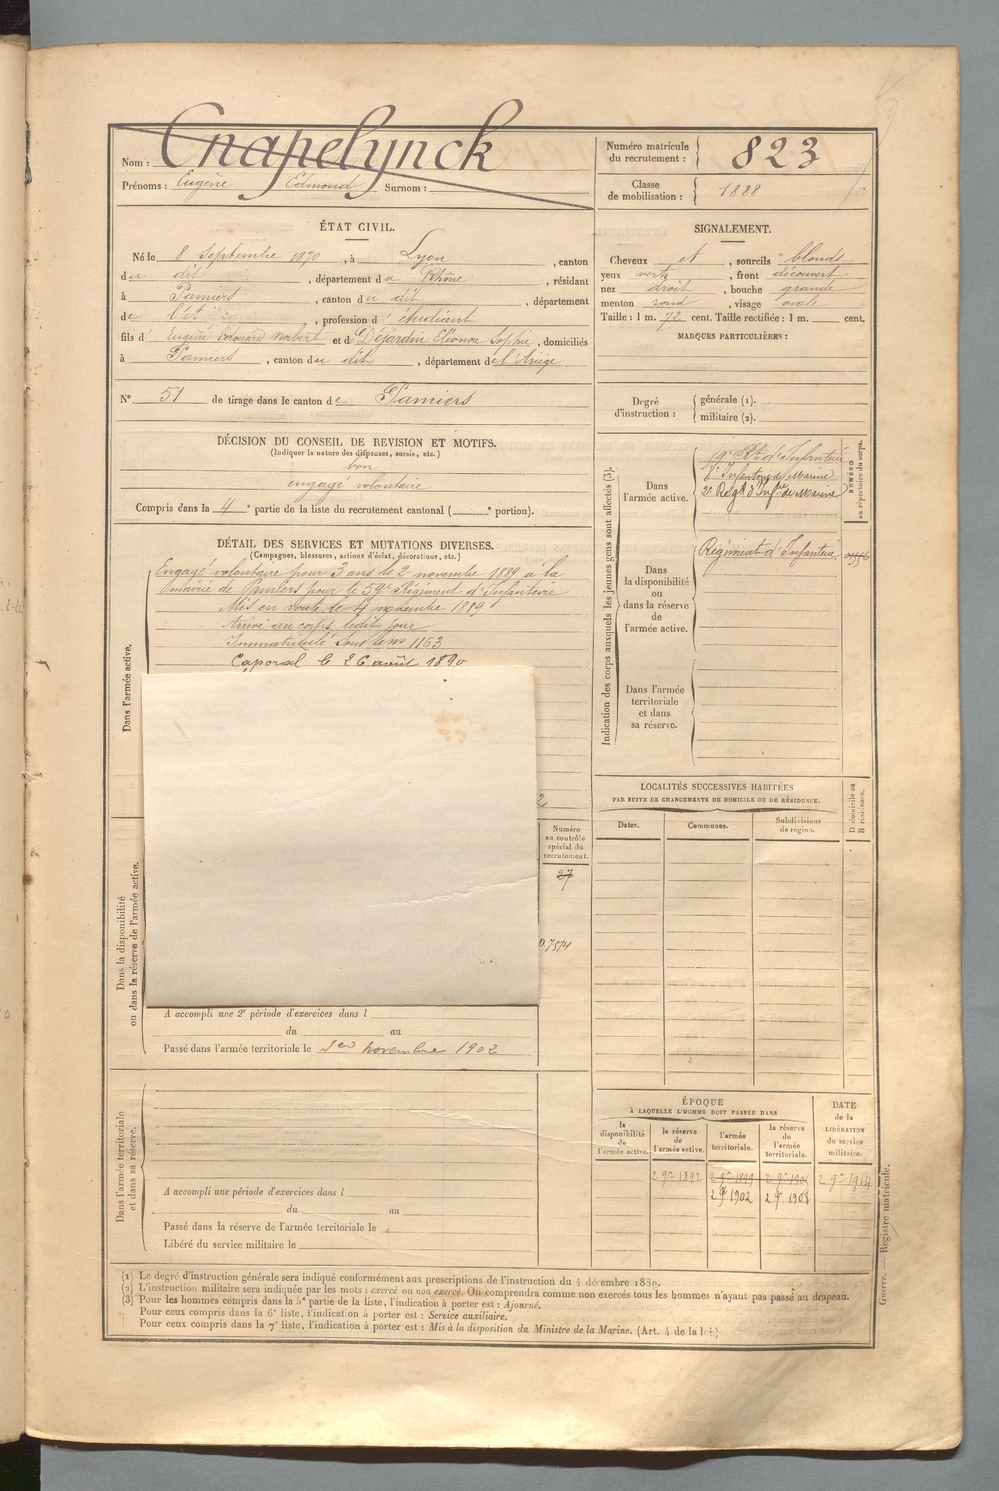 Nom : Cnapelynck
Prénoms : Eugène Edmond Surnom :
Numéro matricule
du recrutement : 823
Classe
de mobilisation : 1888
ÉTAT CIVIL.
Né le 8 septembre 1870, à Lyon, canton
du dit, département du Rhône, résidant
à Pamiers, canton du dit, département
de profession d'étudiant
fils d'Eugène Edouard Norbert et de Déjardin Eléonore Sophie, domiciliés
à Pamiers, canton du dit, département de l'Ariège
N° 51 de tirage dans le canton de Pamiers
DÉCISION DU CONSEIL DE REVISION ET MOTIFS.
(Indiquer la nature des dispenses, sursis, etc.)
bon
engagé volontaire
Compris dans la 4e partie de la liste du recrutement cantonal ( e portion).
DÉTAIL DES SERVICES ET MUTATIONS DIVERSES.
(Campagnes, blessures, actions d'éclat, décorations, etc.)
Dans l'armée active.
Engagé volontaire pour 3 ans le 2 novembre 1889 à la
mairie de Pamiers pour le 59e Régiment d'Infanterie
Mis en route le 4 novembre 1889
Arrivé au corps ledit jour
Immatriculé sous le no 1163
Caporal le 26 août 1890
2
Numéro
au contrôle
spécial du
recrutement.
27
Dans la disponibilité
ou dans la réserve de l'armée active.
A accompli une 2e période d'exercices dans l
du au
Passé dans l'armée territoriale le 1er novembre 1902
Dans l'armée territoriale
et dans sa réserve.
A accompli une période d'exercices dans l
du au
Passé dans la réserve de l'armée territoriale le
Libéré du service militaire le
SIGNALEMENT.
Cheveux et, sourcils blonds
yeux verts, front découvert
nez droit, bouche grande
menton rond, visage ovale
Taille : 1 m. 72 cent. Taille rectifiée : 1 m. cent.
MARQUES PARTICULIÈRES :
Degré
d'instruction :
générale (1).
militaire (2).
Indication des corps auxquels les jeunes gens sont affectés (3).
Dans
l'armée active.
Rt d'Infanterie
Infanterie de Marine
2e Régt d'Infrie de Marine
NUMÉRO
au répertoire du corps.
Dans
la disponibilité
ou
dans la réserve
de
l'armée active.
Régiment d'Infanterie
Dans l'armée
territoriale
et dans
sa réserve.
LOCALITÉS SUCCESSIVES HABITÉES
PAR SUITE DE CHANGEMENTS DE DOMICILE OU DE RÉSIDENCE.
Dates.
Communes.
Subdivisions
de région.
D domicile ou
R résidence.
ÉPOQUE
À LAQUELLE L'HOMME DOIT PASSER DANS
la
disponibilité
de
l'armée active.
la réserve
de
l'armée active.
l'armée
territoriale.
la réserve
de
l'armée
territoriale.
DATE
de la
LIBÉRATION
du service
militaire.
2 9re 1892 2 9re 1899 2 9re 1914
2 9re 1902 2 9re 1908
(1) Le degré d'instruction générale sera indiqué conformément aux prescriptions de l'instruction du 4 décembre 1889.
(2) L'instruction militaire sera indiquée par les mots : exercé ou non exercé. On comprendra comme non exercés tous les hommes n'ayant pas passé au drapeau.
(3) Pour les hommes compris dans la 5e partie de la liste, l'indication à porter est : Ajourné.
Pour ceux compris dans la 6e liste, l'indication à porter est : Service auxiliaire.
Pour ceux compris dans la 7e liste, l'indication à porter est : Mis à la disposition du Ministre de la Marine. (Art. 4 de la loi.)
Guerre. — Registre matricule.